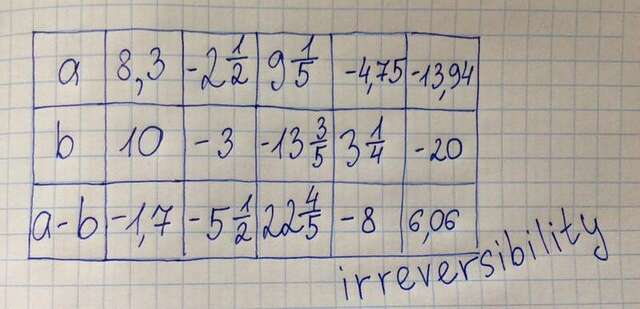 a 8,3 -2 1/2 9 1/5 -4,75 -13,94
b 10 -3 -13 3/5 3 1/4 -20
a-b -1,7 -5 1/2 22 4/5 -8 6,06
irreversibility